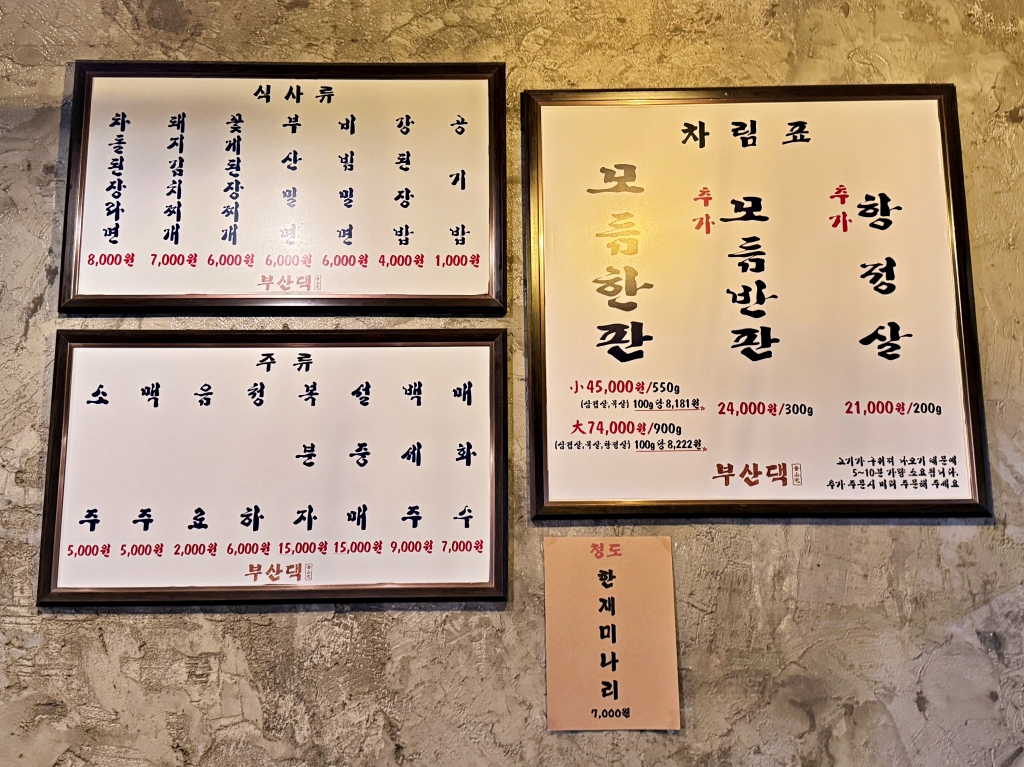 식사류
차돌된장라면
돼지김치찌개
꽃게된장찌개
부산밀면
비빔밀면
강된장밥
공기밥
8,000원 7,000원 6,000원 6,000원 6,000원 4,000원 1,000원
부산댁
주류
소주
맥주
음료
청하
복분자
설중매
백세주
매화수
5,000원 5,000원 2,000원 6,000원 15,000원 15,000원 9,000원 7,000원
부산댁
차림표
모듬한판
추가 모듬반판
추가 항정살
小 45,000원/550g
(삼겹살,목살) 100g당 8,181원
大 74,000원/900g
(삼겹살,목살,항정살) 100g당 8,222원
24,000원/300g
21,000원/200g
고기가 구워져 나오기 때문에
5~10분 가량 소요됩니다.
추가 주문시 미리 주문해 주세요
부산댁
청도
한재미나리
7,000원